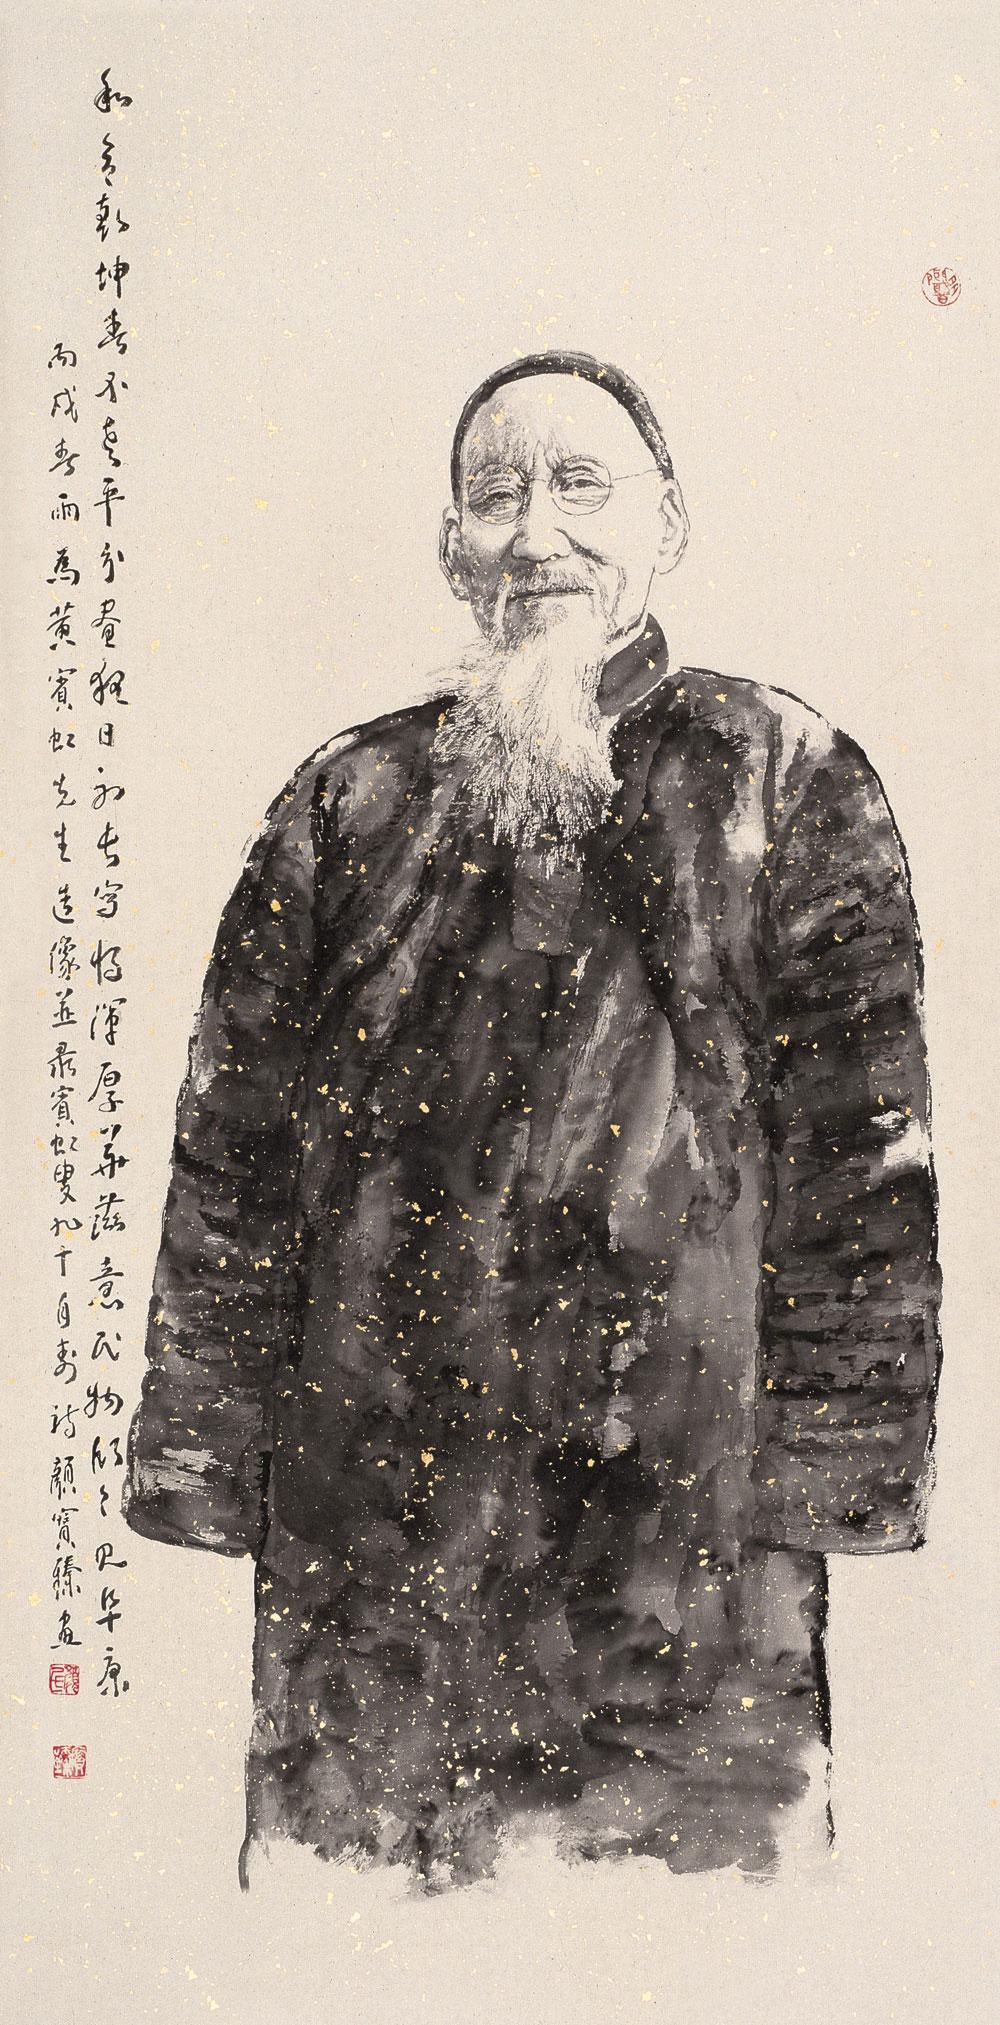 和合乾坤春不老平分晝夜日初長寫將渾厚華滋意民物欣々見阜康
丙戌春雨為黃賓虹先生造像並录賓虹叟九十自壽詩顏寶臻畫